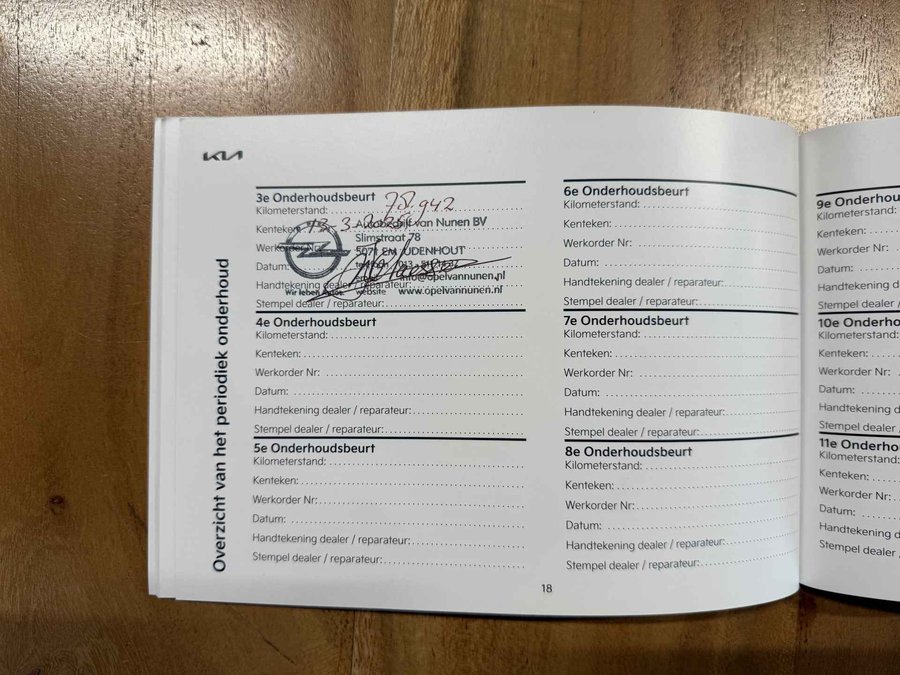 KIA
Overzicht van het periodiek onderhoud
3e Onderhoudsbeurt
Kilometerstand: 78.942
Kenteken:
Autobedrijf van Nunen BV
Werkorder Nr:
Slimstraat 78
5071 EM UDENHOUT
Datum:
telefoon
info@opelvannunen.nl
Handtekening dealer / reparateur:
Wir leben Autos.
website www.opelvannunen.nl
Stempel dealer / reparateur:
4e Onderhoudsbeurt
Kilometerstand:
Kenteken:
Werkorder Nr:
Datum:
Handtekening dealer / reparateur:
Stempel dealer / reparateur:
5e Onderhoudsbeurt
Kilometerstand:
Kenteken:
Werkorder Nr:
Datum:
Handtekening dealer / reparateur:
Stempel dealer / reparateur:
6e Onderhoudsbeurt
Kilometerstand:
Kenteken:
Werkorder Nr:
Datum:
Handtekening dealer / reparateur:
Stempel dealer / reparateur:
7e Onderhoudsbeurt
Kilometerstand:
Kenteken:
Werkorder Nr:
Datum:
Handtekening dealer / reparateur:
Stempel dealer / reparateur:
8e Onderhoudsbeurt
Kilometerstand:
Kenteken:
Werkorder Nr:
Datum:
Handtekening dealer / reparateur:
Stempel dealer / reparateur:
18
9e Onderhous
Kilometerstand:
Kenteken:
Werkorder Nr:
Datum:
Handtekening d
Stempel dealer /
10e Onderho
Kilometerstand:
Kenteken:
Werkorder Nr:
Datum:
Handtekening d
Stempel dealer /
11e Onderho
Kilometerstand:
Kenteken:
Werkorder Nr:
Datum:
Handtekening d
Stempel dealer